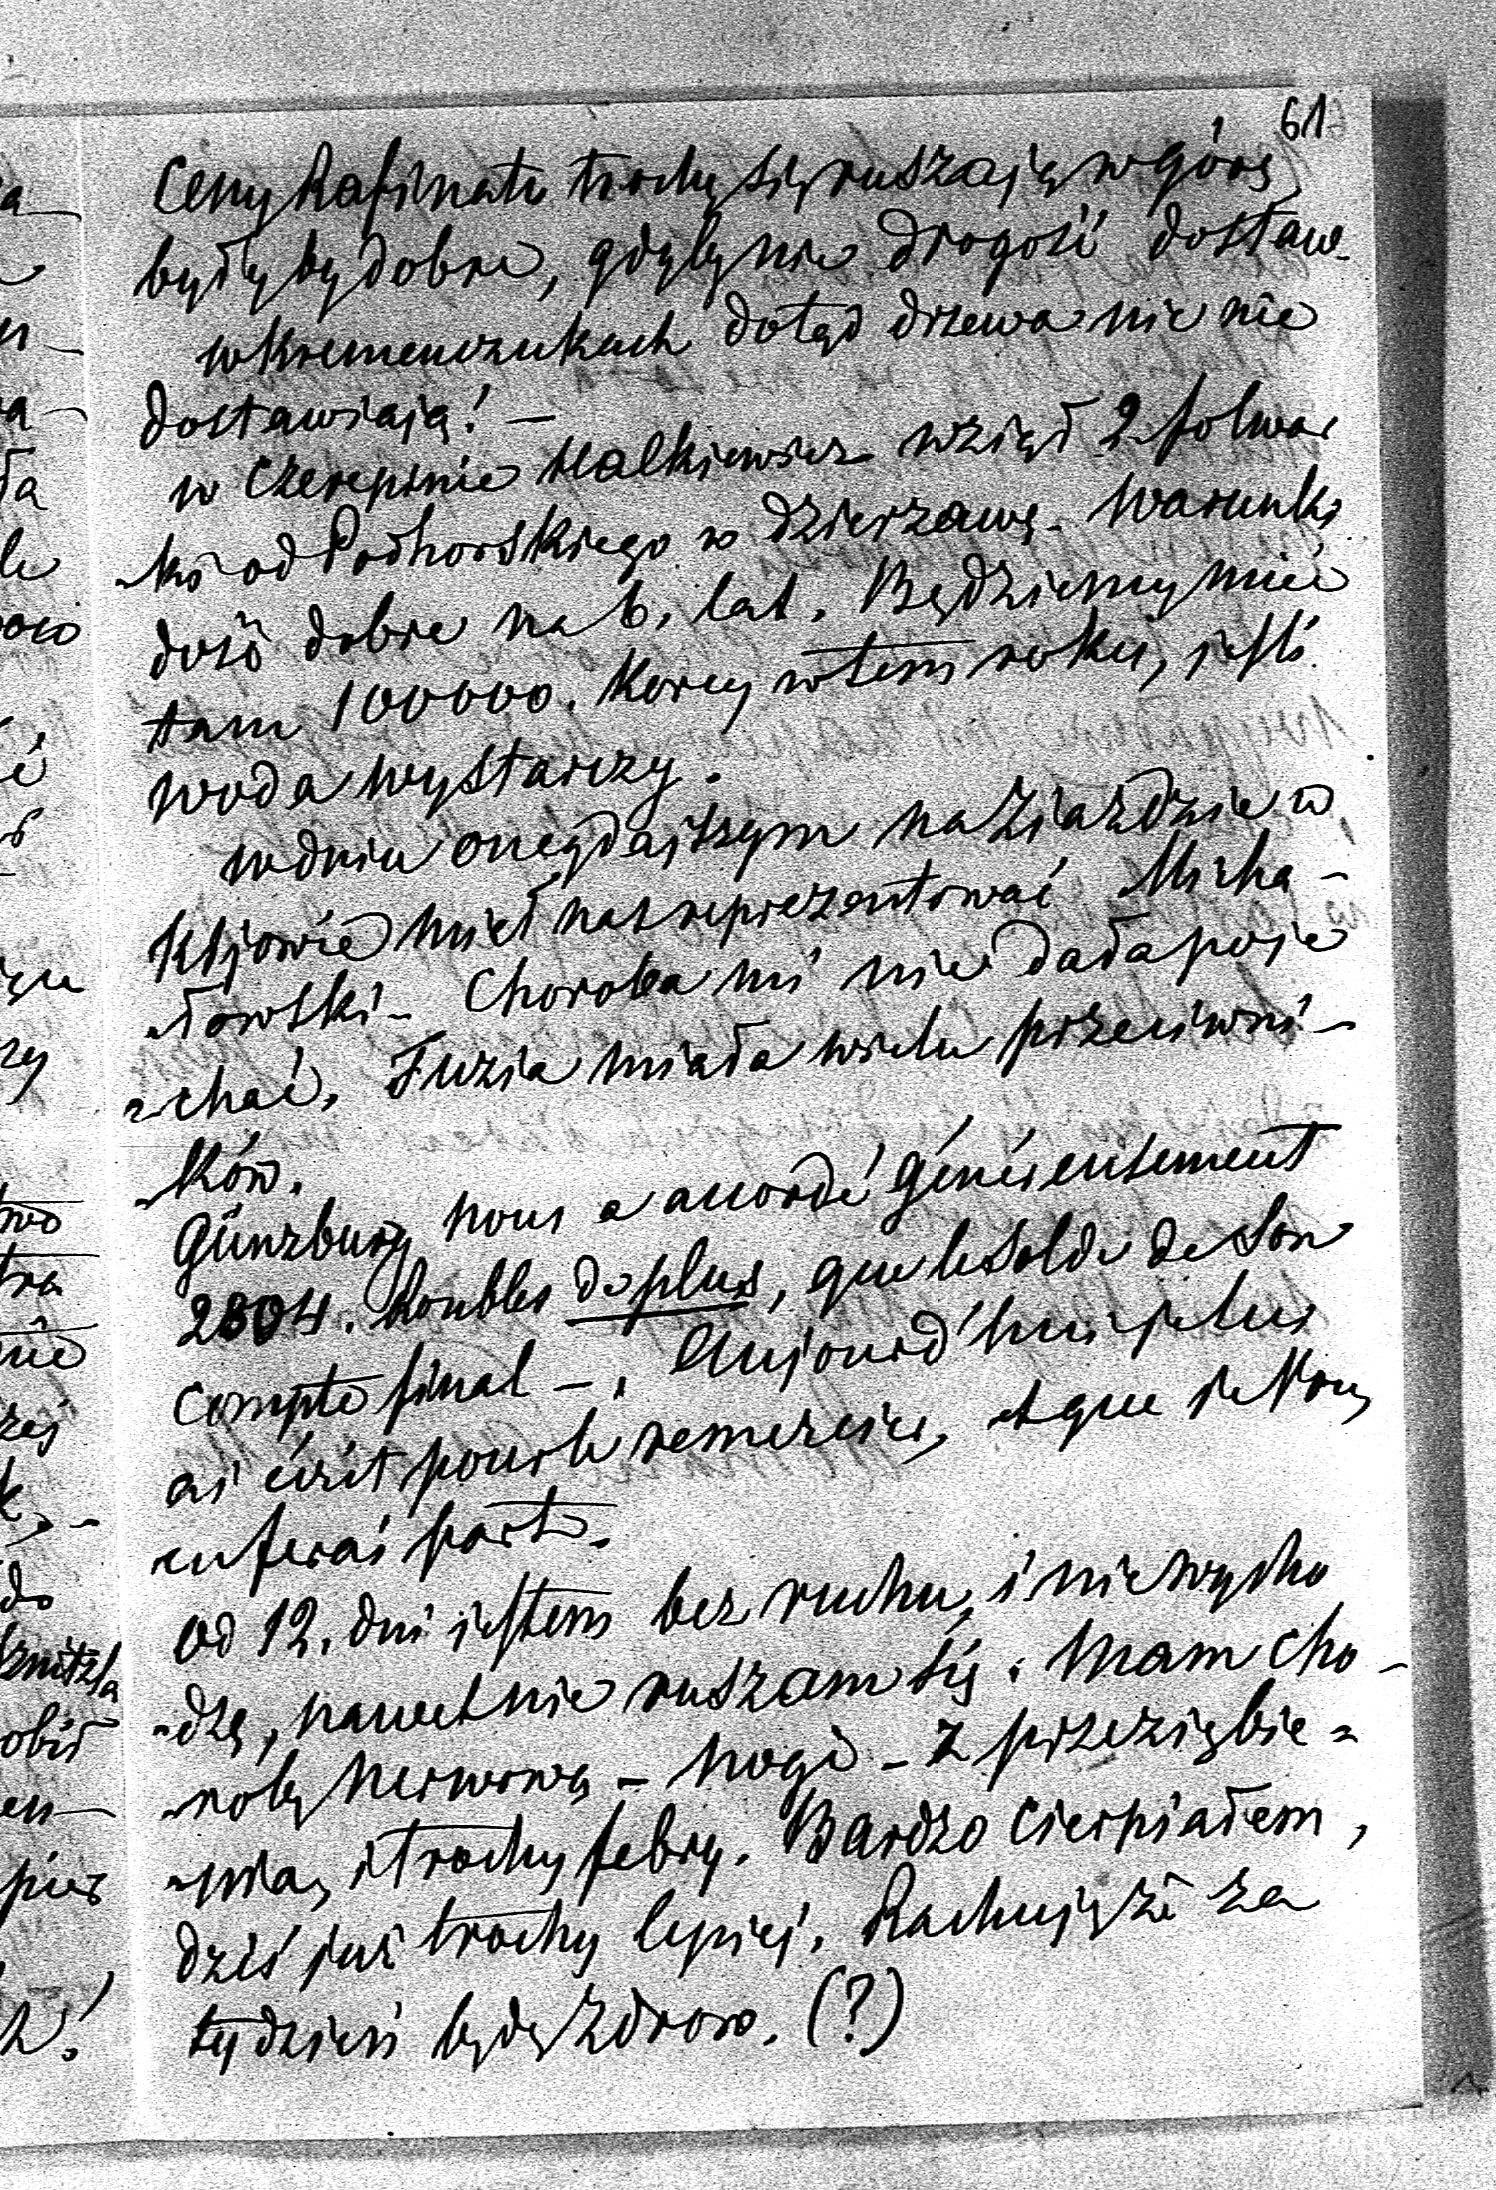 61
Ceny Rafinatu trochę się ruszają w górę
byłyby dobre, gdyby nie drogość dostaw.
w Kremenczukach dotąd drzewa nic nie
dostawiają! —
w Czerepinie Malkiewicz wziął 2 folwar
-ki od Podhorskiego w dzierzawę. Warunki
dość dobre na 6. lat. Będziemy mieć
tam 100000. Korcy w tem roku, jeśli
woda wystarczy.
w dniu onegdajszym na Zjazdzie w
Kijowie miał nas reprezentować Micha-
-łowski - Choroba mi nie dała poje
-chać, Fuzia miała wielu przeciwni-
-ków.
Günzburg nous a accordé généreusement
2804. Roubles de plus, que le Solde de Son
compte final -. Aujourd'hui je lui
ai écrit pour le remercier, et que je Vous
en ferai part.
od 12. dni jestem bez ruchu, i nie wycho
-dzę, nawet nie ruszam się. Mam cho-
-robę nerwową - nogi - z przeziębie-
-nia, i trochę febry. Bardzo cierpiałem,
dziś już trochę lepiej. Rachuję że za
tydzień będę zdrow. (?)